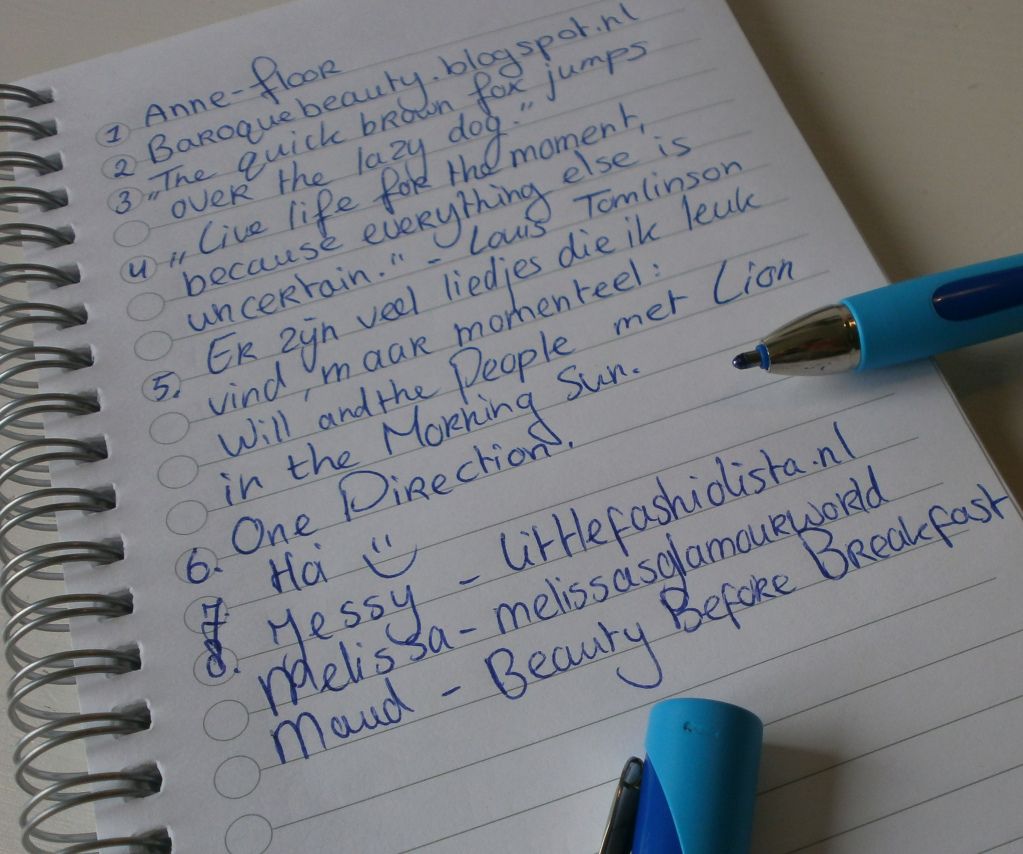 1 Anne-floor
2 Baroquebeauty.blogspot.nl
3 „The quick brown fox jumps
over the lazy dog."
4 „Live life for the moment,
because everything else is
uncertain." - Louis Tomlinson
5. Er zijn veel liedjes die ik leuk
vind, maar momenteel:
Will and the People met Lion
in the Morning Sun.
6. One Direction.
7. Hai
8. Yessy - littlefashiolista.nl
Melissa - melissasglamourworld
Maud - Beauty Before Breakfast